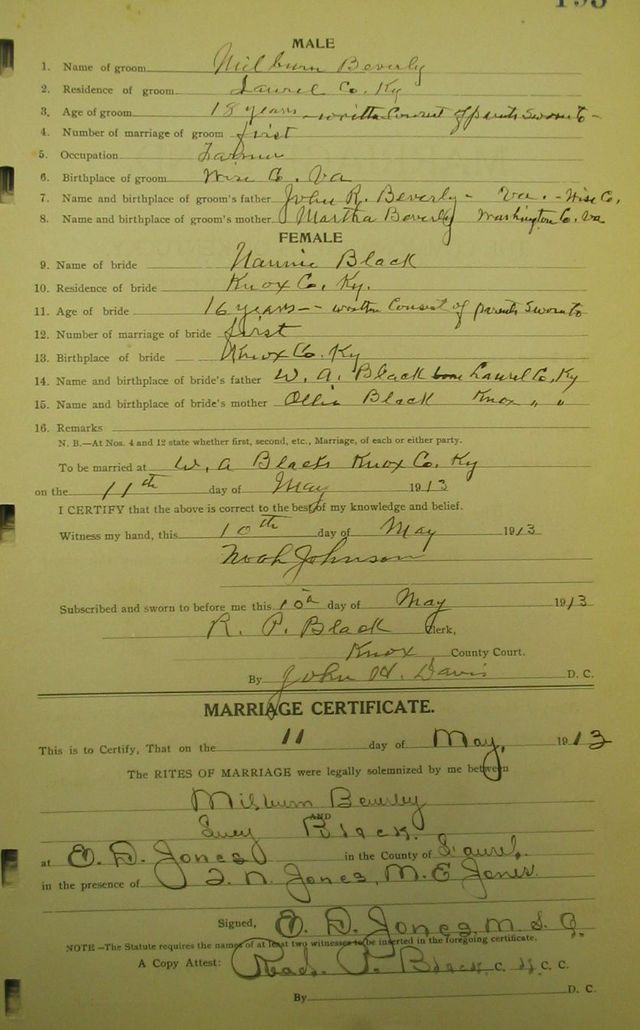 195
MALE
1. Name of groom Milburn Beverly
2. Residence of groom Laurel Co. Ky
3. Age of groom 18 years - written Consent of parents Sworn to -
4. Number of marriage of groom first
5. Occupation Farmer
6. Birthplace of groom Wise Co. Va
7. Name and birthplace of groom's father John R. Beverly - Va. - Wise Co,
8. Name and birthplace of groom's mother Martha Beverly Washington Co. Va
FEMALE
9. Name of bride Nannie Black
10. Residence of bride Knox Co. Ky.
11. Age of bride 16 years - written Consent of parents Sworn to
12. Number of marriage of bride first
13. Birthplace of bride Knox Co. Ky
14. Name and birthplace of bride's father W. A. Black Laurel Co, Ky
15. Name and birthplace of bride's mother Ollie Black Knox " "
16. Remarks
N. B.—At Nos. 4 and 12 state whether first, second, etc., Marriage, of each or either party.
To be married at W. A Blacks Knox Co. Ky
on the 11th day of May 1913
I CERTIFY that the above is correct to the best of my knowledge and belief.
Witness my hand, this 10th day of May 1913
Noah Johnson
Subscribed and sworn to before me this 10th day of May 1913
R. P. Black Clerk,
Knox County Court.
By John H. Davis D. C.
MARRIAGE CERTIFICATE.
This is to Certify, That on the 11 day of May, 1913
The RITES OF MARRIAGE were legally solemnized by me between
Milburn Beverley
AND
Black.
at E. D. Jones in the County of Laurel,
in the presence of J. N. Jones, M. E Jones.
Signed, E. D. Jones, M. S. G.
NOTE—The Statute requires the names of at least two witnesses to be inserted in the foregoing certificate.
A Copy Attest: Read. P. Black C. K. C. C.
By D. C.